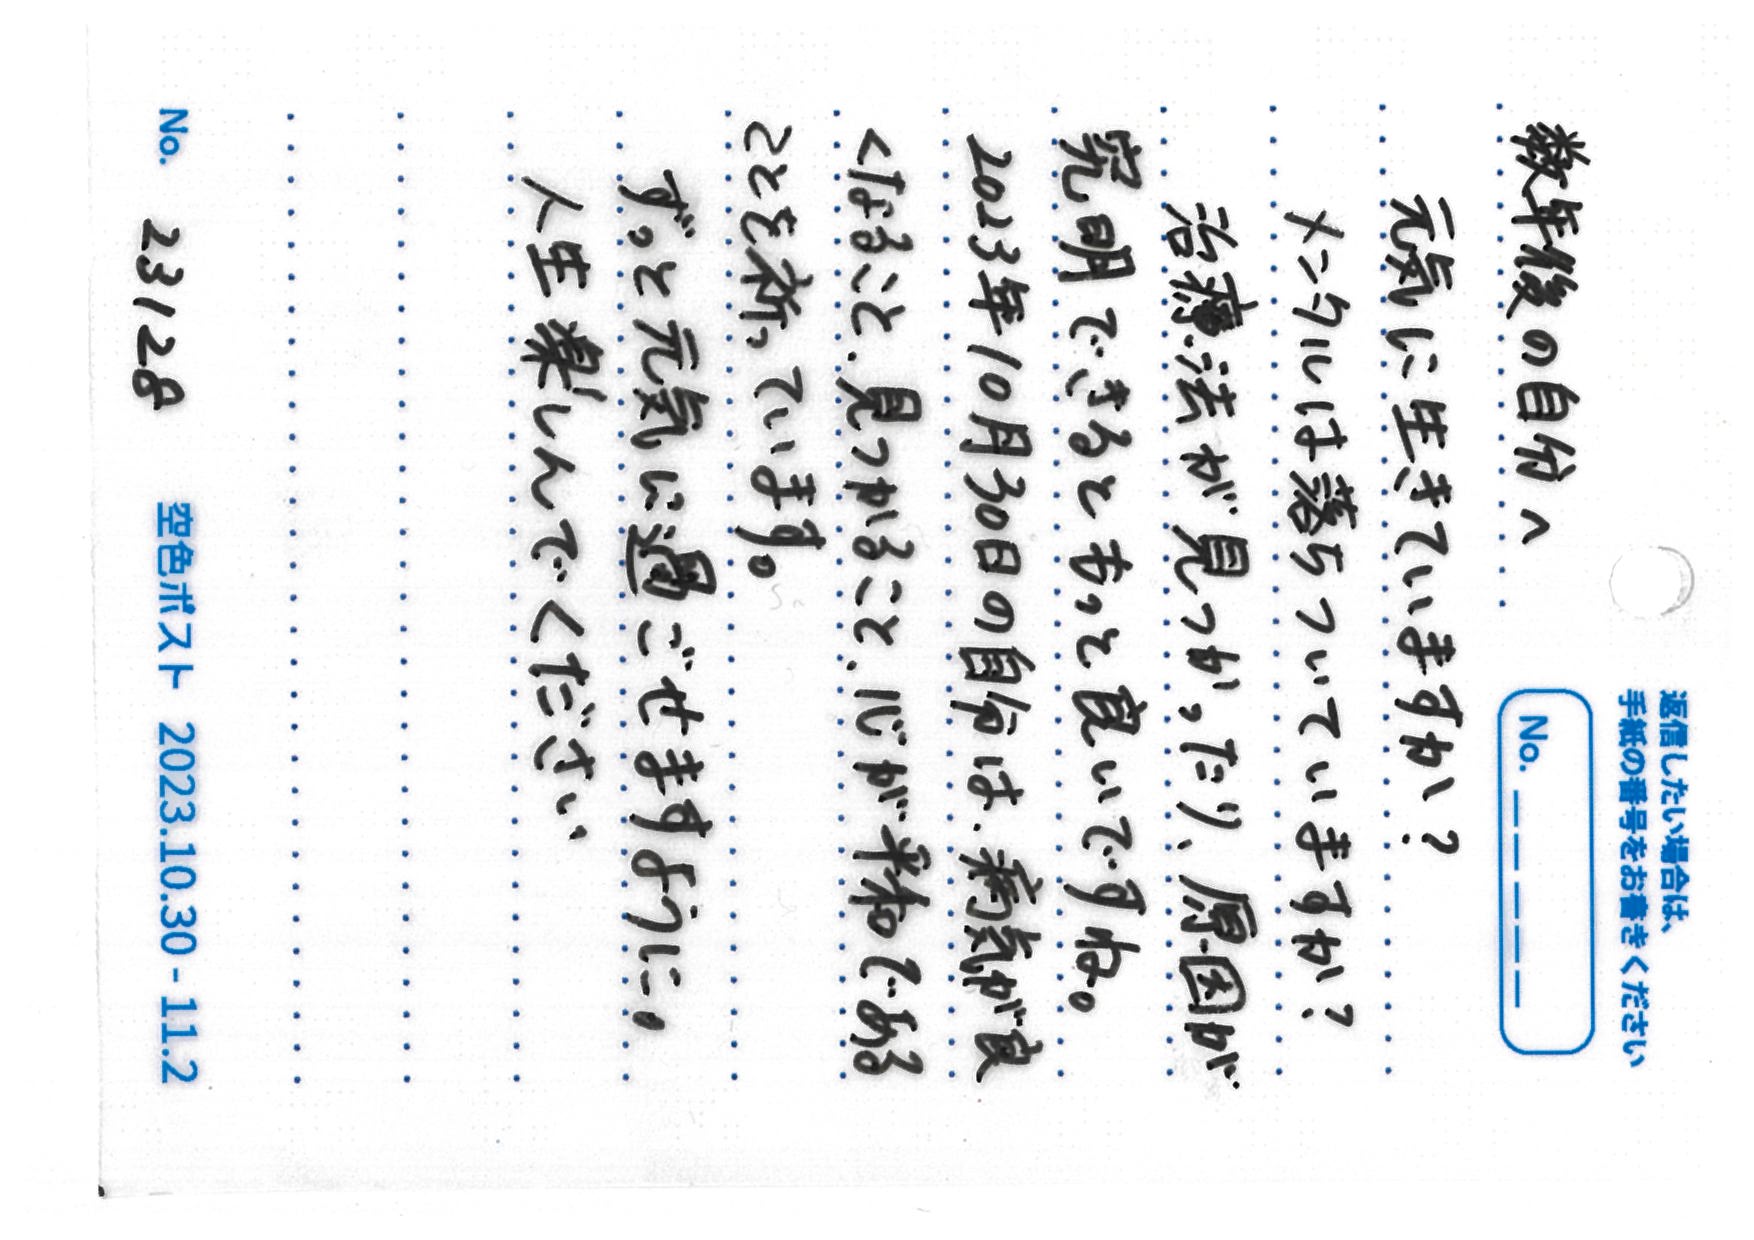 返信したい場合は、
手紙の番号をお書きください
No. _ _ _ _ _
数年後の自分へ
元気に生きていますか?
メンタルは落ちついていますか?
治療法が見つかったり、原因が
究明できるともっと良いですね。
2023年10月30日の自分は、病気が良
くなること、見つかること、心が平和である
ことを祈っています。
ずっと元気に過ごせますように。
人生楽しんでください
No. 23128
空色ポスト 2023.10.30 - 11.2